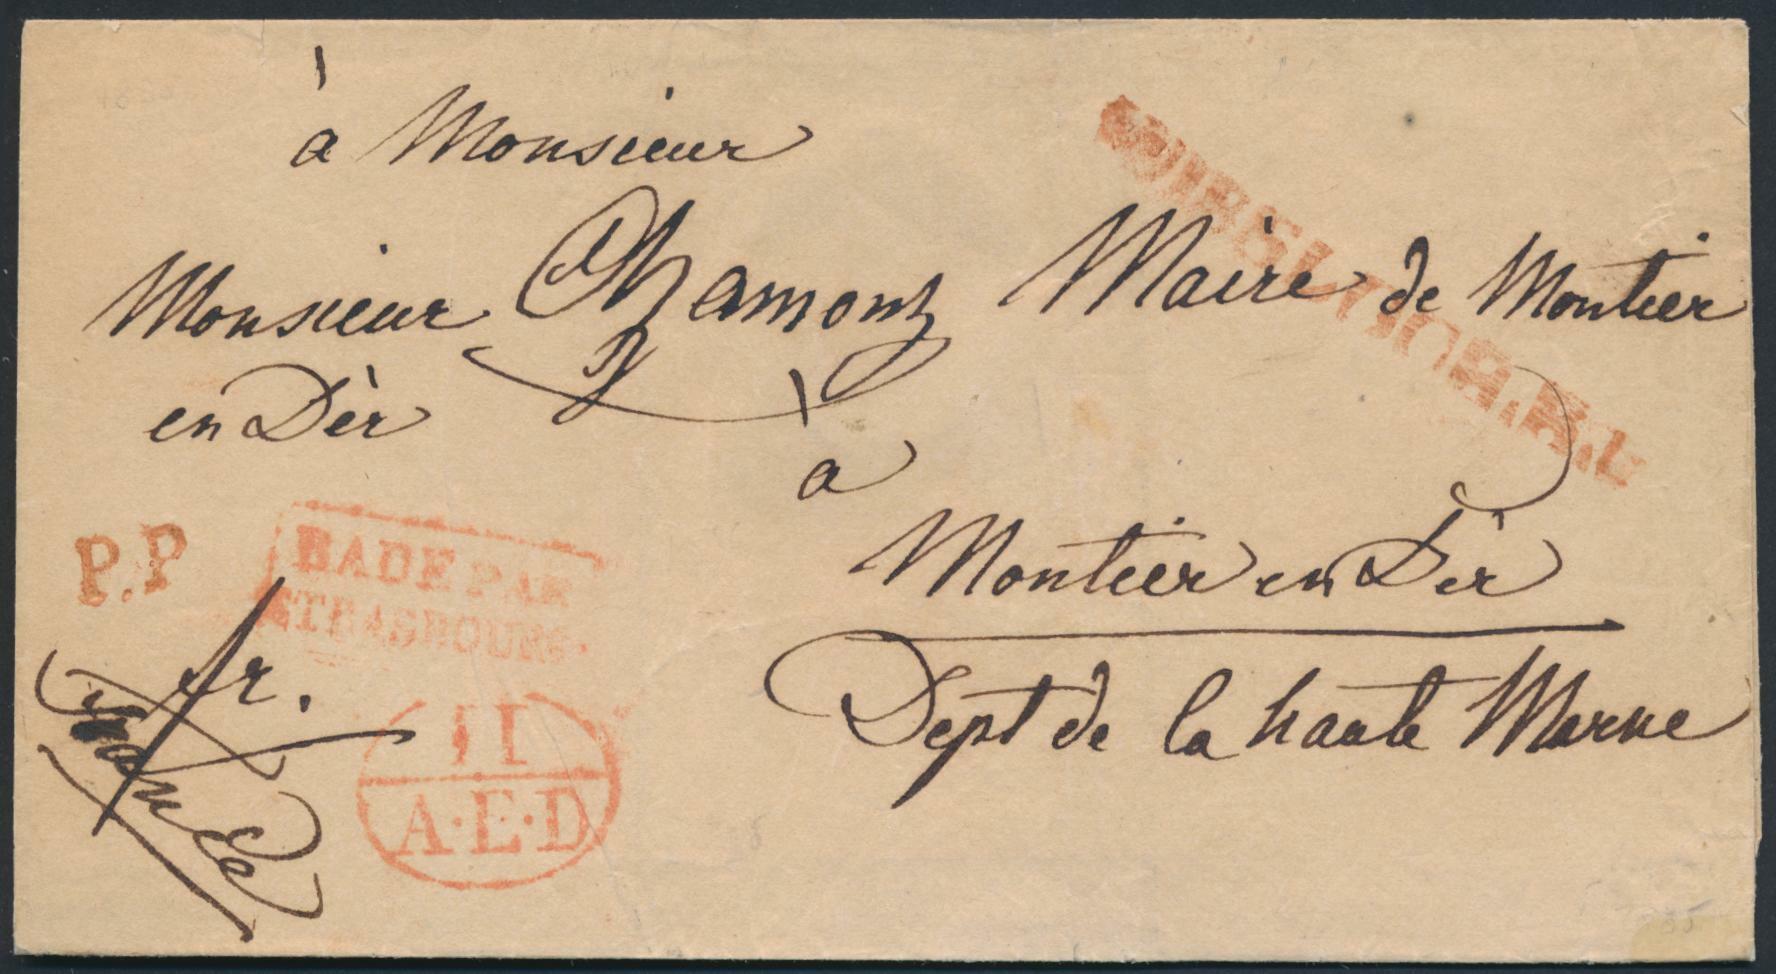 à Monsieur
Monsieur Chamont Maire de Montier
en Dèr
à
Montier en Dèr
Dept de la haute Marne
P.P
BADE PAR
STRASBOURG.
fr.
11
A·E·D